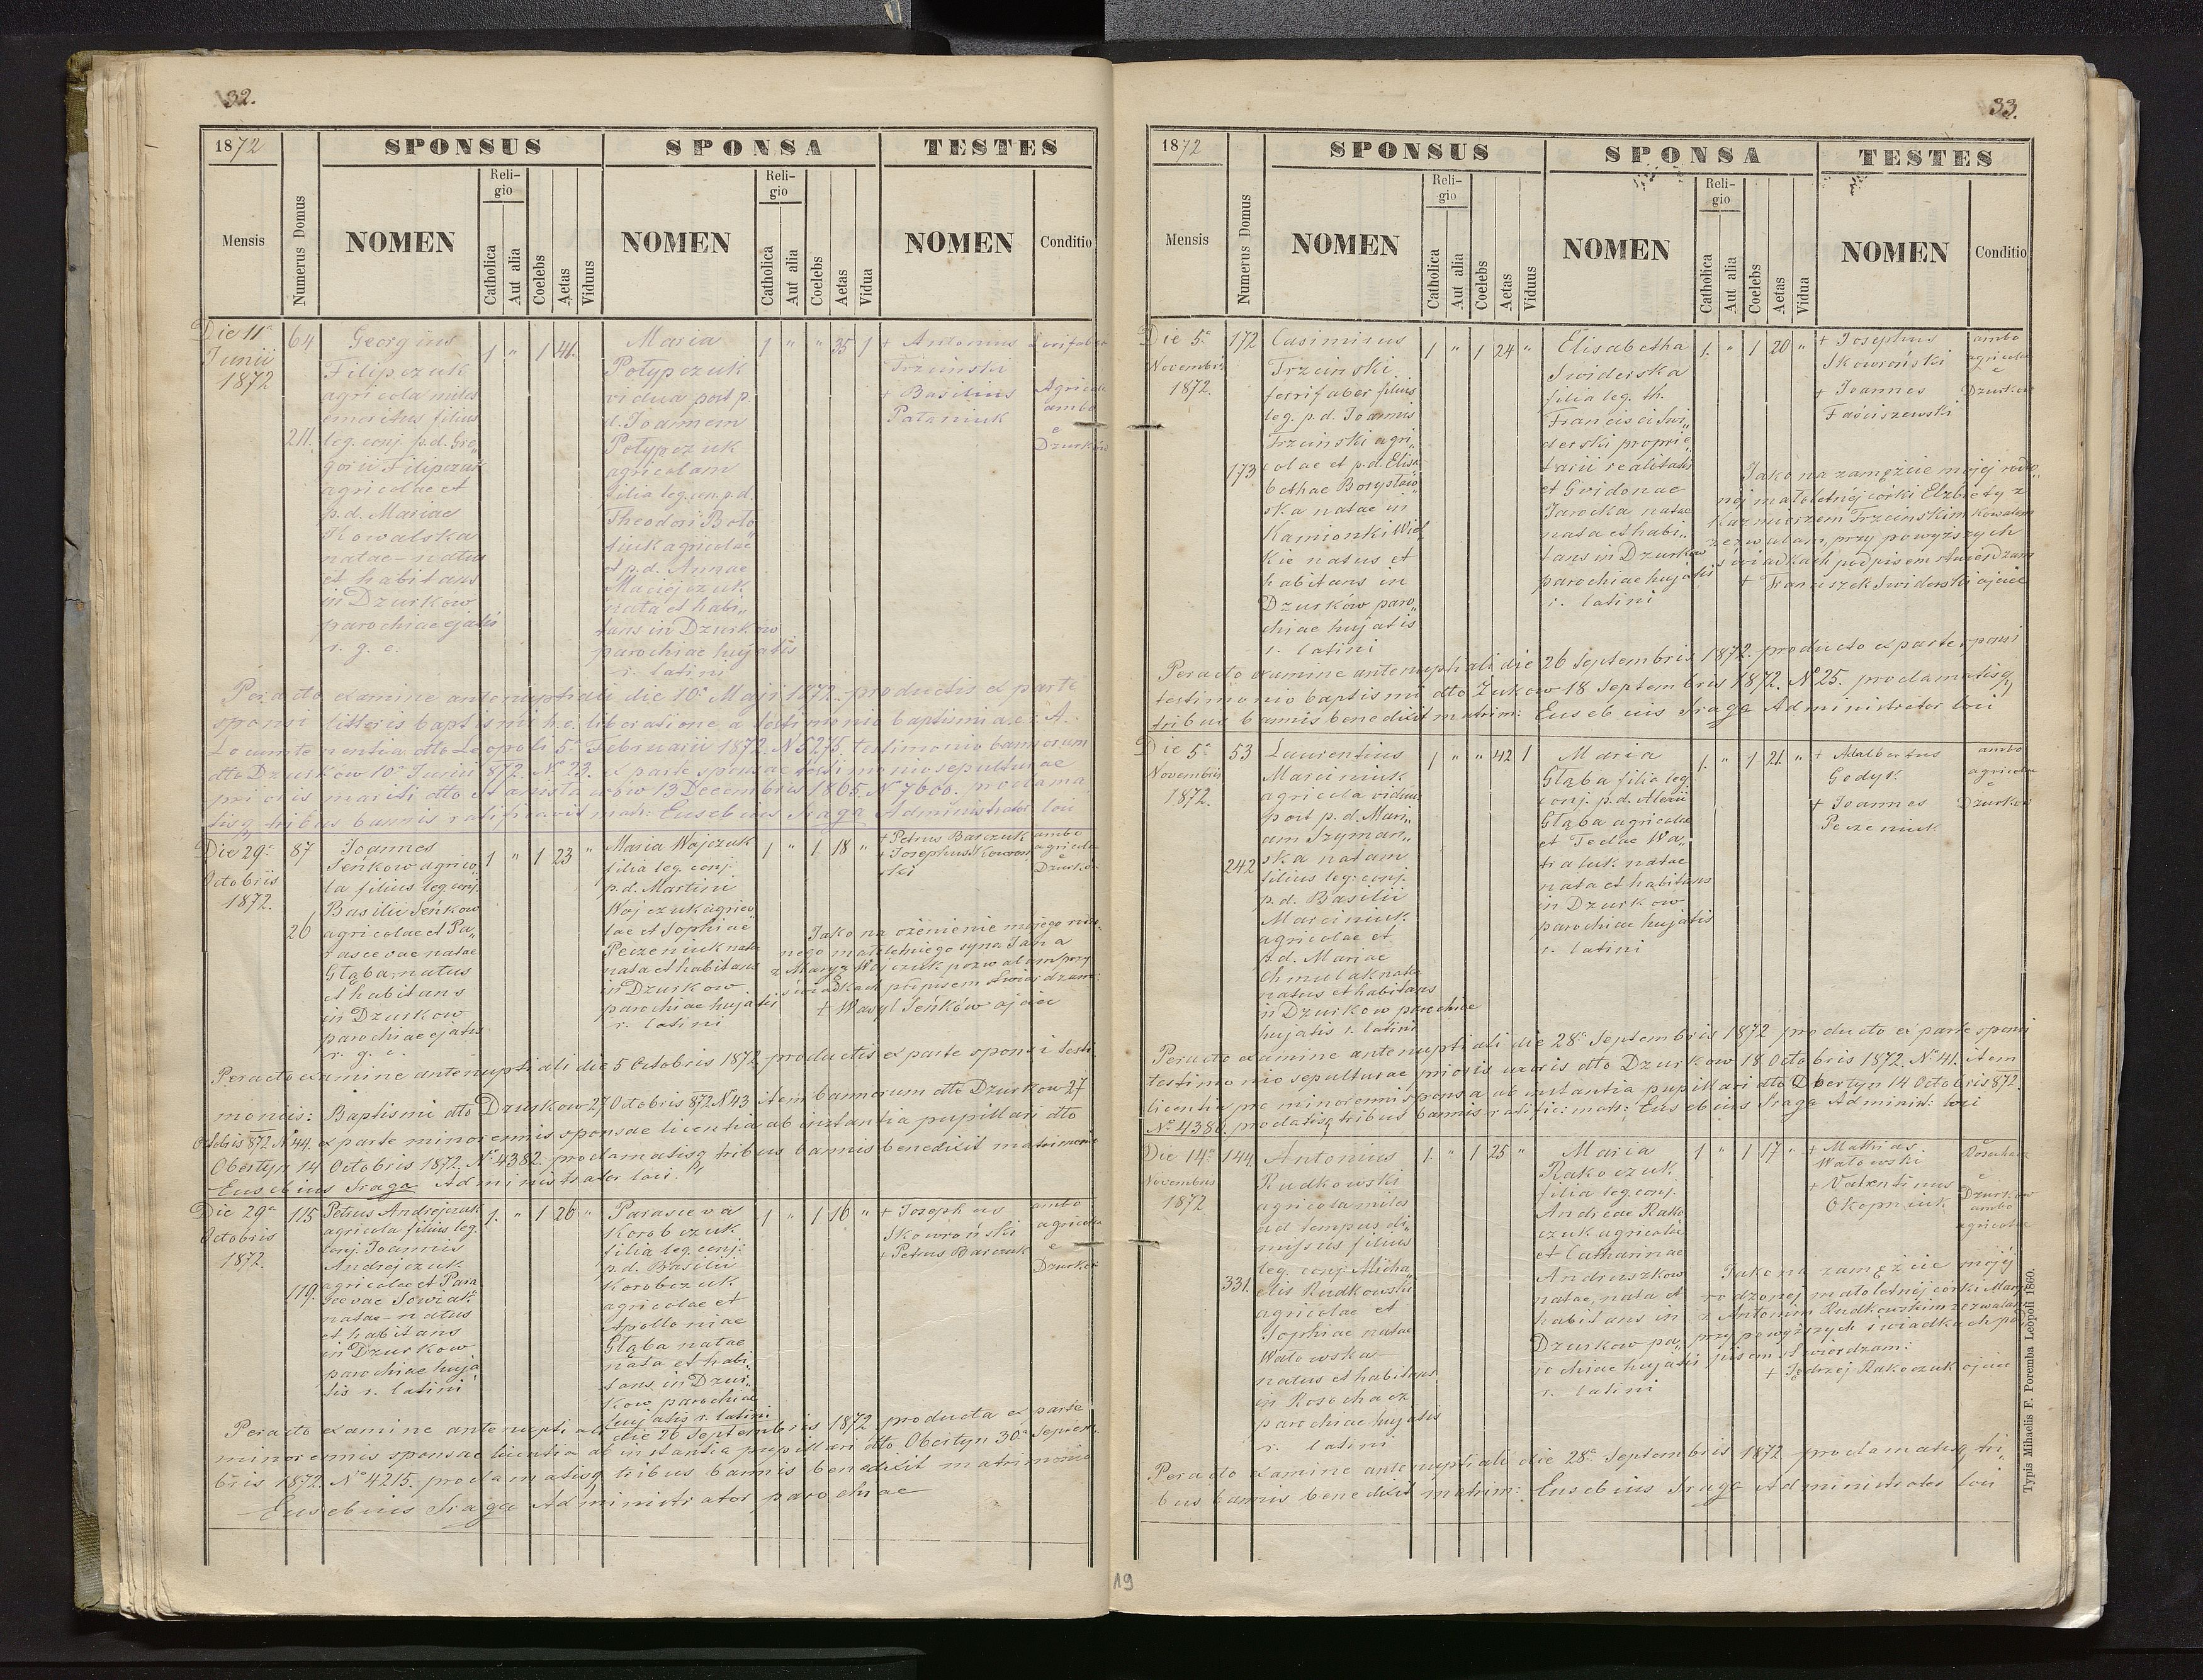 32.
1872
SPONSUS
SPONSA
TESTES
Mensis
Numerus Domus
NOMEN
Religio
Catholica
Aut alia
Coelebs
Aetas
Viduus
NOMEN
Religio
Catholica
Aut alia
Coelebs
Aetas
Vidua
NOMEN
Conditio
Die 11a
Junii
1872
64
211.
Georgius
Filipczuk
agricola miles
emeritus filius
leg. conj. p.d. Gre„
gorii Filipczuk
agricolae et
p.d. Mariae
Kowalska
natae - natus
et habitans
in Dzurków
parochiae ejatis
r. g. c.
1 " 1 41.
Maria
Potypczuk
vidua post p.
d. Joannem
Potypczuk
agricolam
filia leg. con. p.d.
Theodori Boto
tiuk agricolae
et p.d. Annae
Maciejczuk
nata et habi„
tans in Dzurkow
parochiae hujatis
r. latini
1 " " 35 1
+ Antonius
Trzcinski
+ Basilius
Pataniuk
ferrifaber
Agricola
ambo
e
Dzurków
Peracto examine antenuptiali die 10a Maji 1872. productis ex parte
sponsi litteris baptismi h.e. liberatione a testimonio baptismi a c. r. A.
Locumtenentia dtto Leopoli 5a Februarii 1872. N 5275. testimonio bannorum
dtto Dzurków 10a Junii 872. No 23. ex parte sponsae testimonio sepulturae
prioris mariti dtto 13 Decembris 1865 N 7600. proclama
tisq tribus bannis ratificavit matr: Eusebius Sraga Administrator loci
Die 29a
Octobris
1872.
87
26
Joannes
Seńkow agrico
la filius leg. conj.
Basilii Seńkow
agricolae et Pa„
rascevae natae
Głąba, natus
et habitans
in Dzurkow
parochiae ejatis
r. g. c.
1 " 1 23 "
Maria Wojczuk
filia leg. conj.
p.d. Martini
Wojczuk agrico
lae et Sophiae
Peczeniuk nata
nata et habitans
in Dzurkow
parochiae hujatis
r. latini
1 " 1 18 "
+ Petrus Barczuk
+ Josephus Skowron
ski
ambo
agricolae
e
Dzurków
Jako na ożenienie mojego rod.
nego małoletniego syna Jana
z Maryą Wojczuk pozwalam przy
świadkach podpisem stwierdzam:
+ Wasyl Seńków ojciec
Peracto examine antenuptiali die 5 Octobris 1872 productis ex parte sponsi testi
moniis: Baptismi dtto Dzurkow 27 Octobris 872 N 43 item bannorum dtto Dzurkow 27
Octobris 872 N 44. ex parte minorennis sponsae licentia ab instantia pupillari dtto
Obertyn 14 Octobris 1872. No 4382. proclamatisq tribus bannis benedixit matrimonio
Eusebius Sraga Administrator loci.
Die 29a
Octobris
1872.
115
119.
Petrus Andrejczuk
agricola filius leg.
conj. Joannis
Andrejczuk
agricolae et Para
scevae Sowiak
natae - natus
et habitans
in Dzurkow
parochiae huja
tis r. latini
1. " 1 26 "
Parasceva
Korobczuk
filia leg. conj.
p.d. Basilii
Korobczuk
agricolae et
Apolloniae
Głąba natae
nata et habi„
tans in Dzur„
kow parochiae
hujatis r. latini
1 " 1 16 "
+ Josephus
Skowroński
+ Petrus Barczuk
ambo
agricolae
e
Dzurków
Peracto examine antenuptiali die 26 Septembris 1872 producta ex parte
minorennis sponsae licentia ab instantia pupillari dtto Obertyn 30a Septem
bris 1872. No 4215. proclamatisq tribus bannis benedixit matrimonio
Eusebius Sraga Administrator parochiae
33.
1872
SPONSUS
SPONSA
TESTES
Mensis
Numerus Domus
NOMEN
Religio
Catholica
Aut alia
Coelebs
Aetas
Viduus
NOMEN
Religio
Catholica
Aut alia
Coelebs
Aetas
Vidua
NOMEN
Conditio
Die 5a
Novembris
1872.
172
173
Casimirus
Trzcinski
ferrifaber filius
leg. p.d. Joannis
Trzcinski agri„
colae et p.d. Elisa
bethae Borysław
ska natae in
Kamionki Wiel
kie natus et
habitans in
Dzurków paro„
chiae hujatis
r. latini
1 " 1 24 "
Elisabetha
Swiderska
filia leg. th.
Francisci Swi„
derski proprie
tarii realitatis
et Gvidonae
Jarocka natae
nata et habi„
tans in Dzurkow
parochiae hujatis
r. latini
1. " 1 20 "
+ Josephus
Skowroński
+ Joannes
Faściszewski
ambo
agricolae
e
Dzurkow
Jako na zamęzcie mojéj rodzo„
néj małoletniéj córki Elzbiety z
Kazmierzem Trzcinskim kowalem
zezwalam, przy powyższych
swiadkach podpisem stwierdzam
+ Franciszek Swiderski ojciec
Peracto examine antenuptiali die 26 Septembris 1872. producto ex parte sponsi
testimonio baptismi dtto Zukow 18 Septembris 1872. No 25. proclamatisq
tribus bannis benedixit matrim: Eusebius Sraga Administrator loci
Die 5a
Novembris
1872.
53
242
Laurentius
Marciniuk
agricola viduus
post p.d. Mari
am Szyman„
ska natam
filius leg: conj.
p.d. Basilii
Marciniuk
agricolae et
p.d. Mariae
Chmulak natae
natus et habitans
in Dzurkow parochiae
hujatis r. latini
1 " " 42 1
Maria
Głąba filia leg.
conj. p.d. Alexii
Głąba agricolae
et Teclae Wa„
traluk natae
nata et habitans
in Dzurkow
parochiae hujatis
r. latini
1. " 1 21. "
+ Adalbertus
Godyk
+ Joannes
Peczeniuk
ambo
agricolae
e
Dzurkow
Peracto examine antenuptiali die 28a Septembris 1872 producto ex parte sponsi
testimonio sepulturae prioris uxoris dtto Dzurkow 18 Octobris 1872. No 41. item
licentia pro minorenni sponsa ab instantia pupillari dtto Obertyn 14 Octobris 872.
No 4380. proclatisq tribus bannis ratific: matr: Eusebius Sraga Administ: loci
Die 14a
Novembris
1872
144
331.
Antonius
Rudkowski
agricola miles
ad tempus di„
missus filius
leg. conj. Micha„
elis Rudkowski
agricolae et
Sophiae natae
Watowska
natus et habitans
in Kosochacz
parochiae hujatis
r. latini
1. " 1 25 "
Maria
Rakoczuk
filia leg. conj.
Andreae Rako
czuk agricolae
et Catharinae
Andruszkow
natae, nata et
habitans in
Dzurkow pa„
rochiae hujatis
r. latini
1 " 1 17 "
+ Mathias
Watowski
+ Valentinus
Okopniuk
e
Dzurkow
ambo
agricolae
Jako na zamęzcie mojéj
rodzonej małoletniéj córki Maryi
z Antonim Rudkowskim zezwalam
przy powyższych świadkach pod
pisem stwierdzam:
+ Jędrzej Rakoczuk ojciec
Peracto examine antenuptiali die 28a Septembris 1872 proclamatisq tri„
bus bannis benedixit matrim: Eusebius Sraga Administrator loci
Typis Mihaelis F. Poremba Leopoli 1860.
19